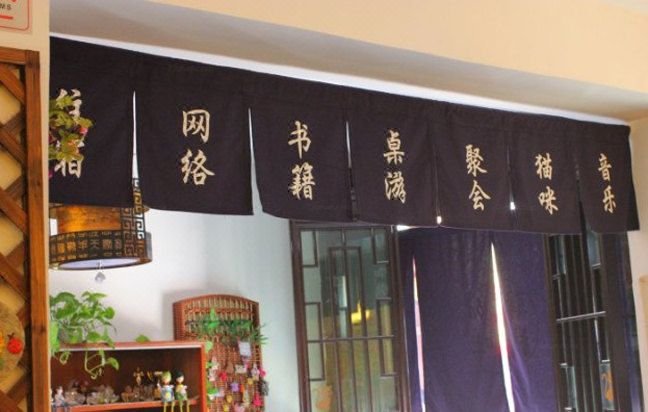 网络
书籍
桌滋
聚会
猫咪
音乐